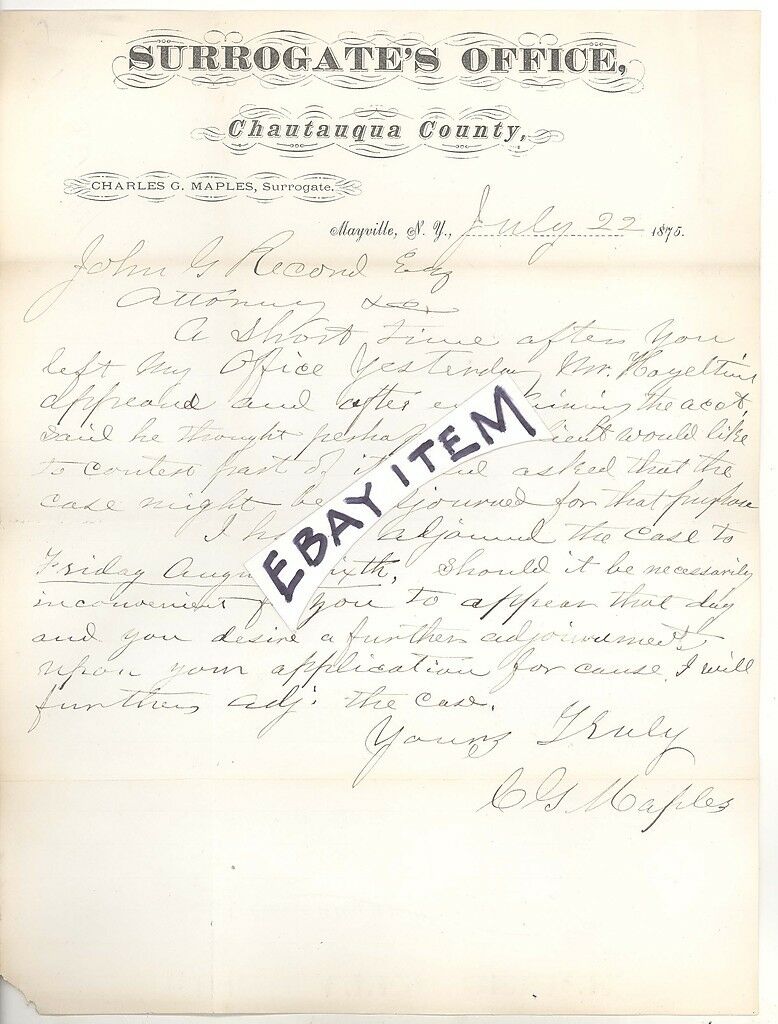 SURROGATE'S OFFICE,
Chautauqua County,
CHARLES G. MAPLES, Surrogate.
Mayville, N. Y., July 22 1875.
John G Record Esq
Attorney &c
A short time after you
left my office yesterday Mr. Hazeltine
appeared and after the acct,
said he thought would like
to contest part of it asked that the
case might be for that purpose
I adjourned the case to
Friday
EBAY ITEM
Should it be necessarily
inconvenient you to appear that day
and you desire a further adjournment,
upon your application for cause, I will
further adj: the case.
Yours Truly
C G Maples